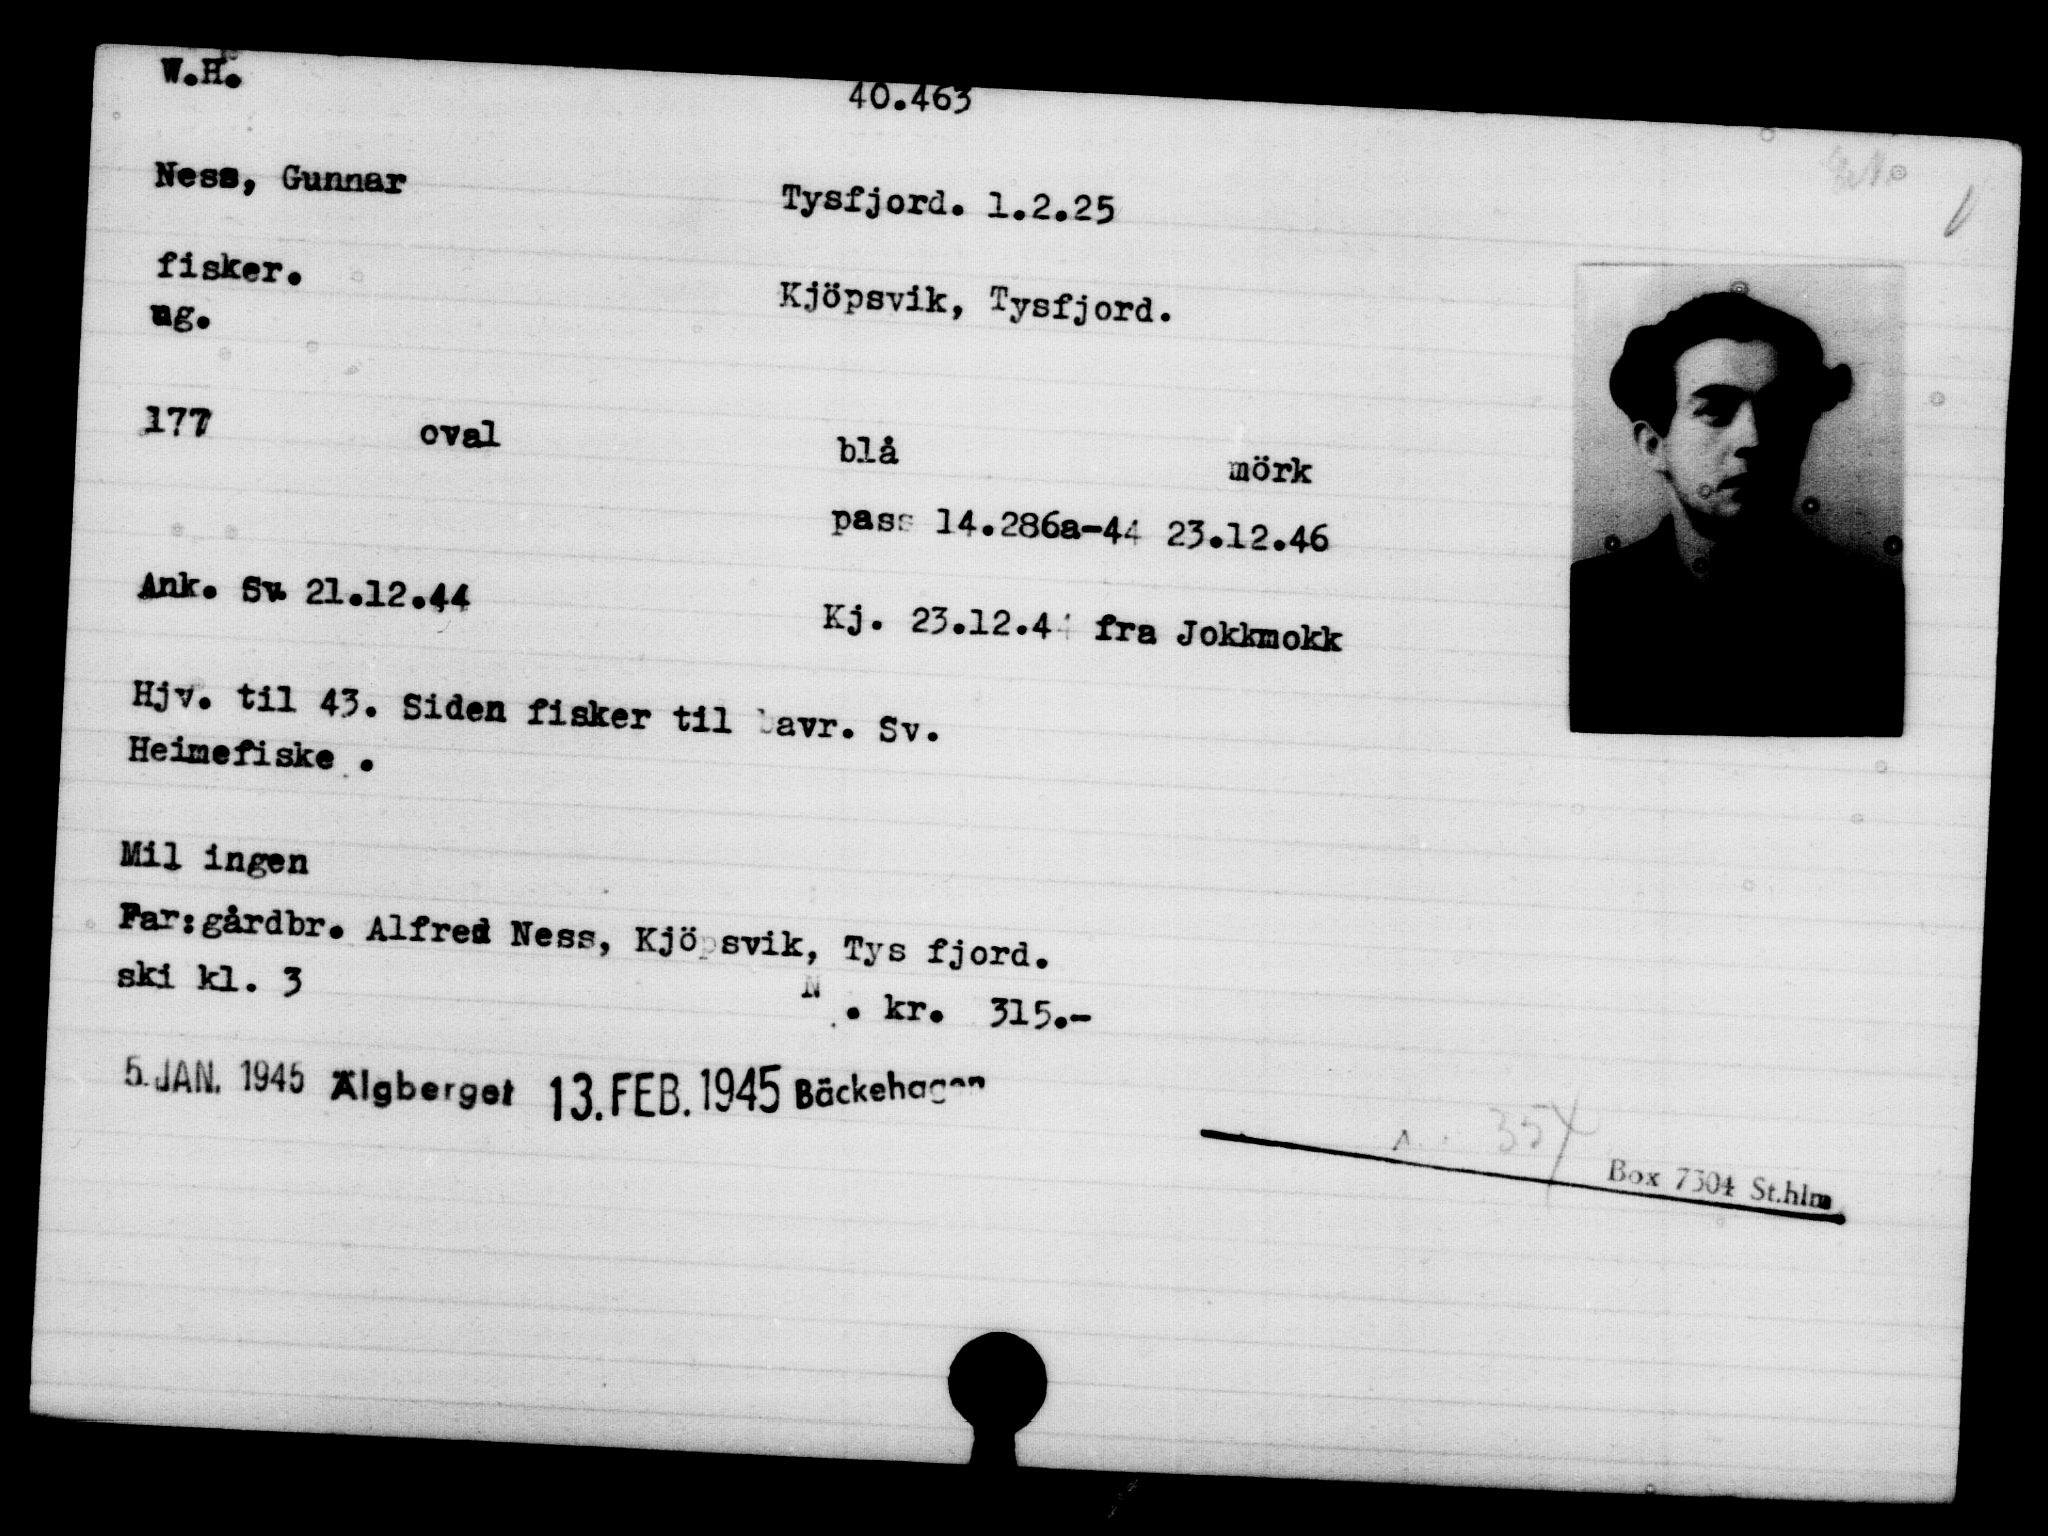 W.H.
40.463
Ness, Gunnar
Tysfjord. 1.2.25
fisker.
Kjöpsvik, Tysfjord.
ug.
177 oval blå mörk
pass 14.286a-44 23.12.46
Ank. Sv. 21.12.44
Kj. 23.12.44 fra Jokkmokk
Hjv. til 43. Siden fisker til avr. Sv.
Heimefiske .
Mil ingen
Far:gårdbr. Alfred Ness, Kjöpsvik, Tys fjord.
ski kl. 3
N . kr. 315.-
5. JAN. 1945 Älgberget 13. FEB. 1945 Bäckehagen
Box 7304 St.hlm